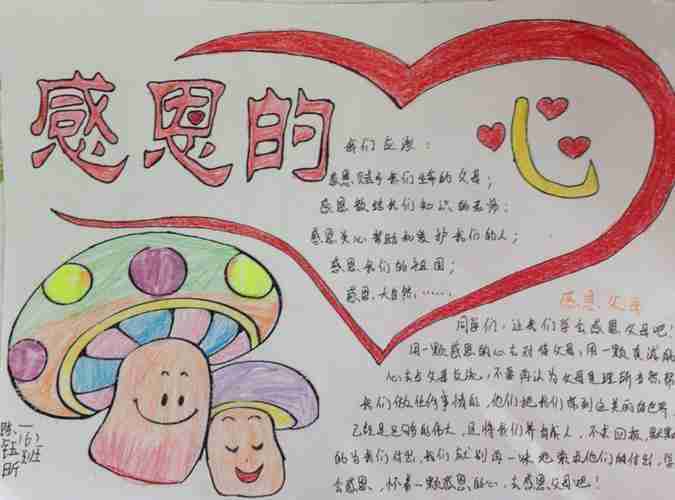 感恩的心
我们应该：
感恩赋予我们生命的父母；
感恩教给我们知识的老师；
感恩关心帮助和爱护我们的人；
感恩我们的祖国；
感恩大自然……
感恩父母
同学们，让我们学会感恩父母吧！
用一颗感恩的心去对待父母，用一颗真诚的
心去与父母交流，不要再认为父母是理所当然帮
我们做任何事情的，他们把我们带到这美丽的世界，
已经是足够的伟大，且将我们养育成人，不求回报，默默
的为我们付出，我们就别再一味地索求他们的付出，学
会感恩，怀着一颗感恩的心，去感恩父母吧！
一(6)班